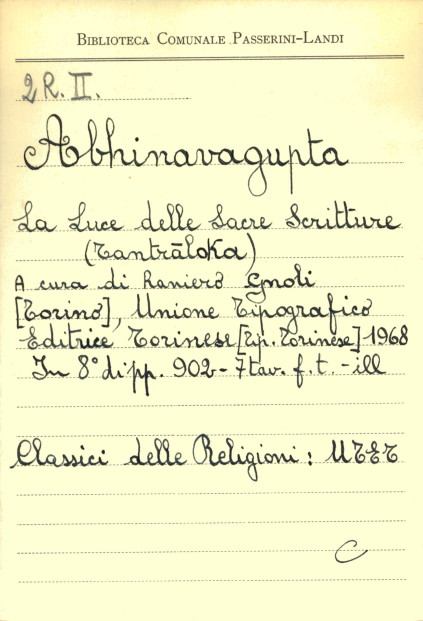 BIBLIOTECA COMUNALE PASSERINI-LANDI
2R. II.
Abhinavagupta
La Luce delle Sacre Scritture
(Tantrāloka)
A cura di Raniero Gnoli
[Torino], Unione Tipografico
Editrice Torinese [Tip. Torinese] 1968
In 8° di pp. 902-7 tav. f. t. - ill
Classici delle Religioni: UTET
C